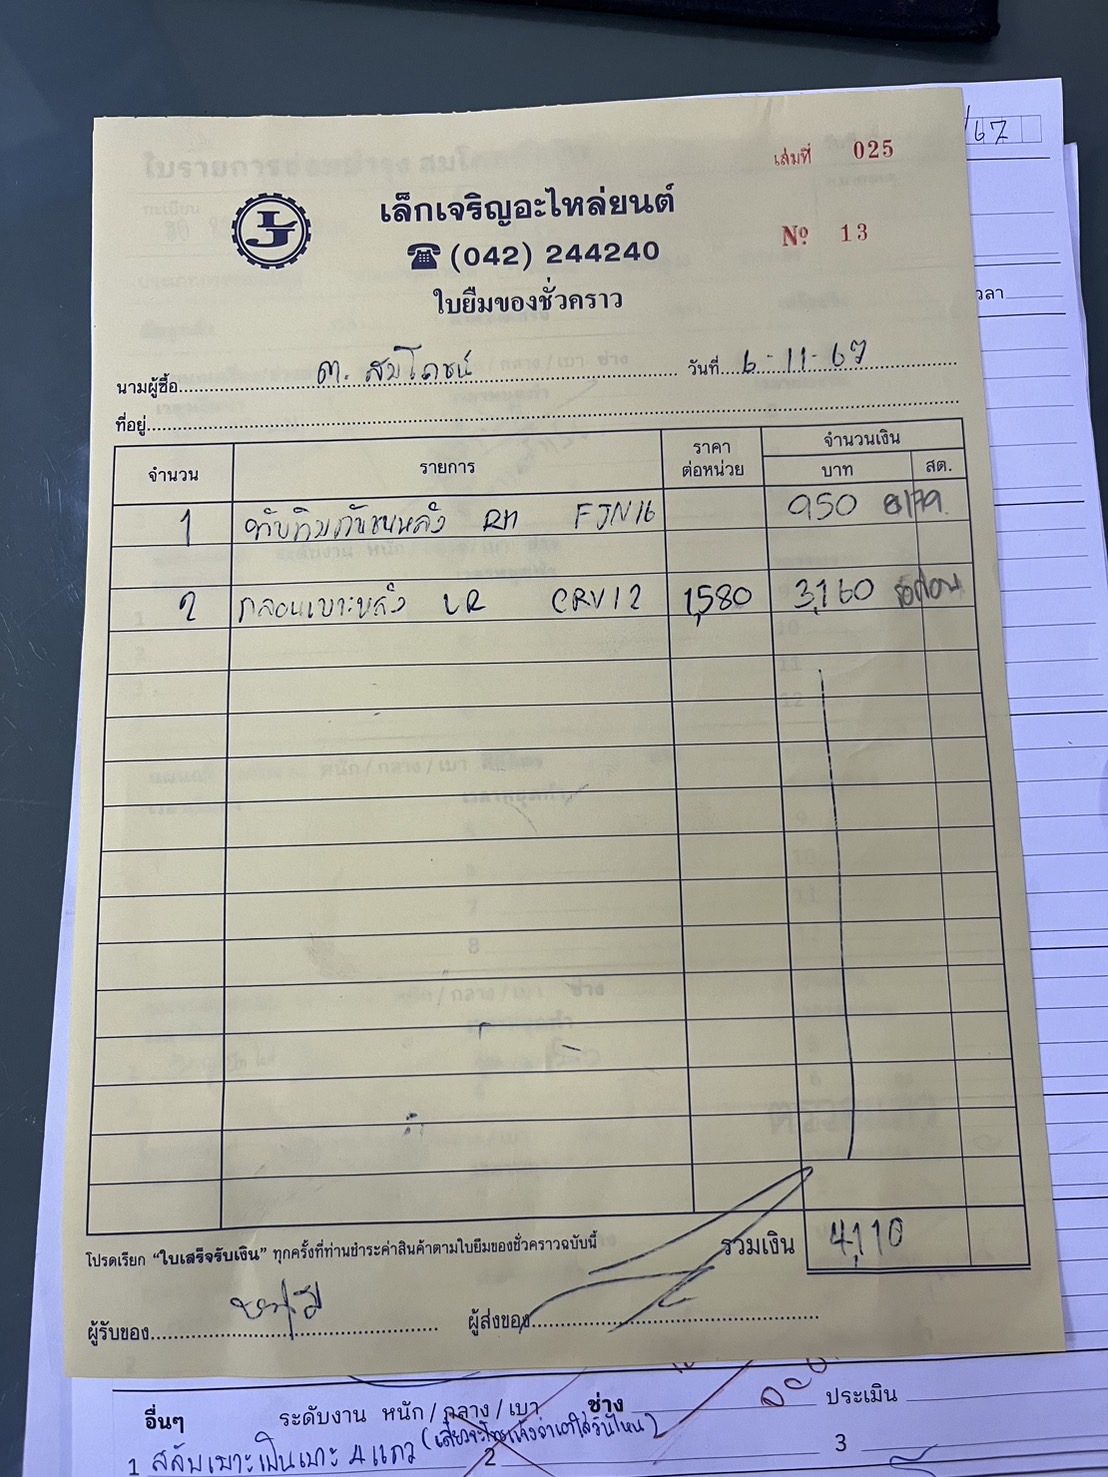 /67
เล่มที่ 025
LJ
เล็กเจริญอะไหล่ยนต์
№ 13
☎ (042) 244240
ใบยืมของชั่วคราว
วลา
นามผู้ซื้อ ต. สมโภชน์ วันที่ 6-11-67
ที่อยู่
จำนวน รายการ ราคาต่อหน่วย จำนวนเงิน
บาท สต.
1 ทับทิมกันชนหลัง RH FJN16 950
2 กลอนเบาะหลัง LR CRV12 1,580 3,160
รวมเงิน 4,110
โปรดเรียก "ใบเสร็จรับเงิน" ทุกครั้งที่ท่านชำระค่าสินค้าตามใบยืมของชั่วคราวฉบับนี้
ผู้รับของ ผู้ส่งของ
อื่นๆ ระดับงาน หนัก / กลาง / เบา ช่าง ประเมิน
1 สลับเบาะเป็นเบาะ 4 แถว 2 3